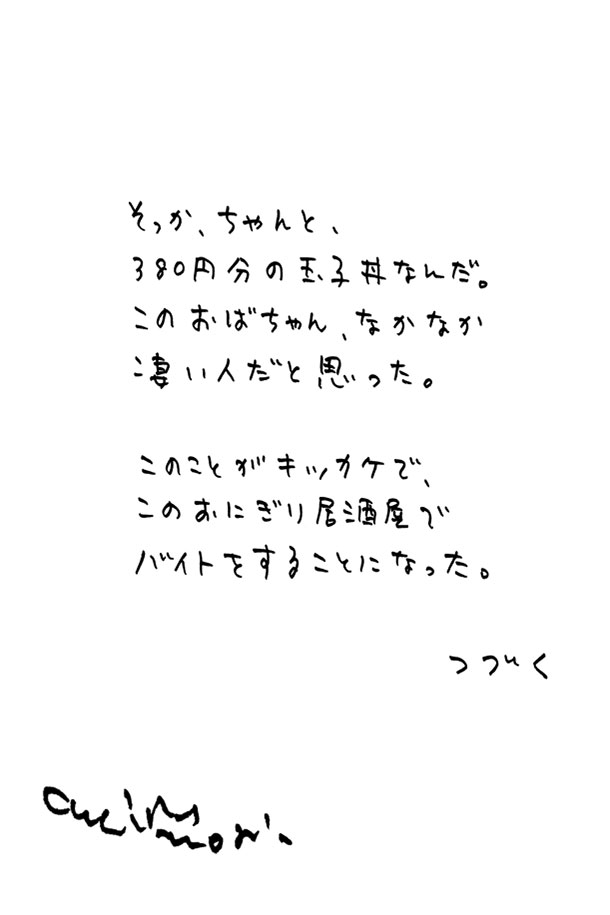 そっか、ちゃんと、
380円分の玉子丼なんだ。
このおばちゃん、なかなか
凄い人だと思った。
このことがキッカケで、
このおにぎり居酒屋で
バイトをすることになった。
つづく